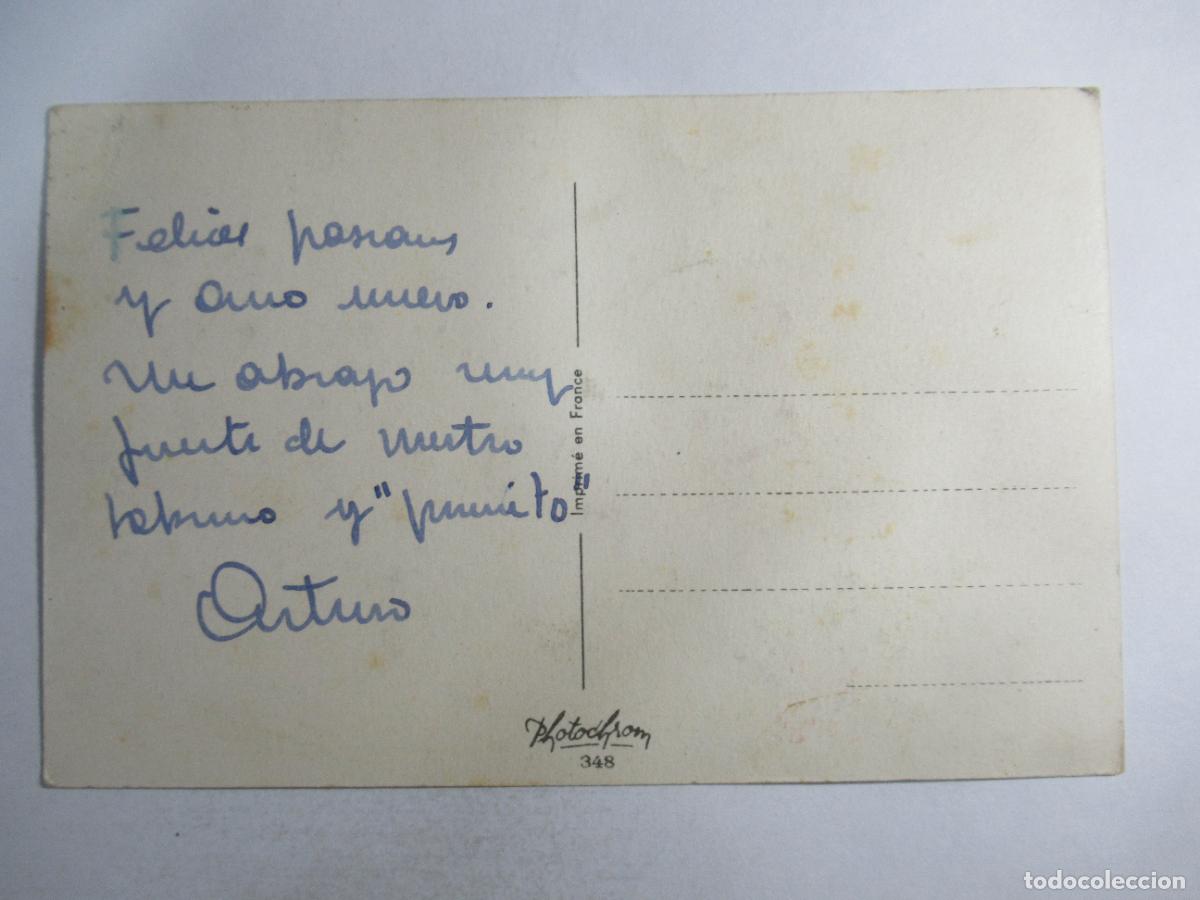 Felices pascuas
y año nuevo.
Un abrazo muy
fuerte de vuestro
sobrino y "primito"
Arturo
Imprimé en France
Photochrom
348
todocoleccion